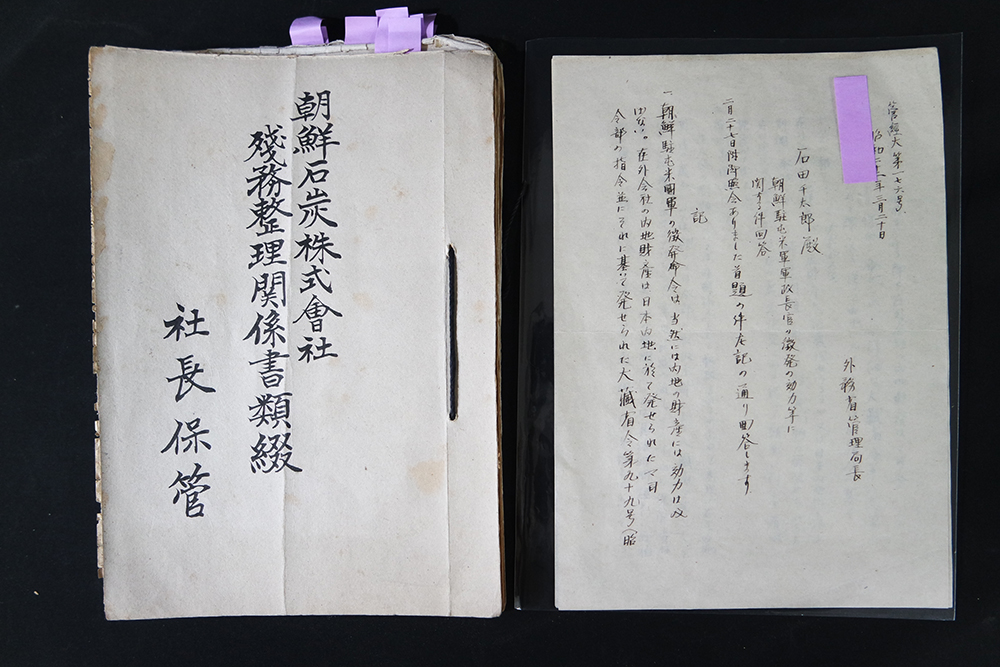 朝鮮石炭株式會社
殘務整理関係書類綴
社長保管
管經大第一七六号
昭和二十一年三月二十日
外務省管理局長
石田千太郎殿
朝鮮駐屯米軍軍政長官の徴発の効力等に
関する件回答
二月二十七日附御照会ありました首題の件左記の通り回答します
記
一、朝鮮駐屯米国軍の徴発命令は、当然には内地の財産には効力は及
ばない。在外会社の内地財産は日本内地に於て発せられたマ司
令部の指令並にそれに基いて発せられた大藏省令第九十九号(昭